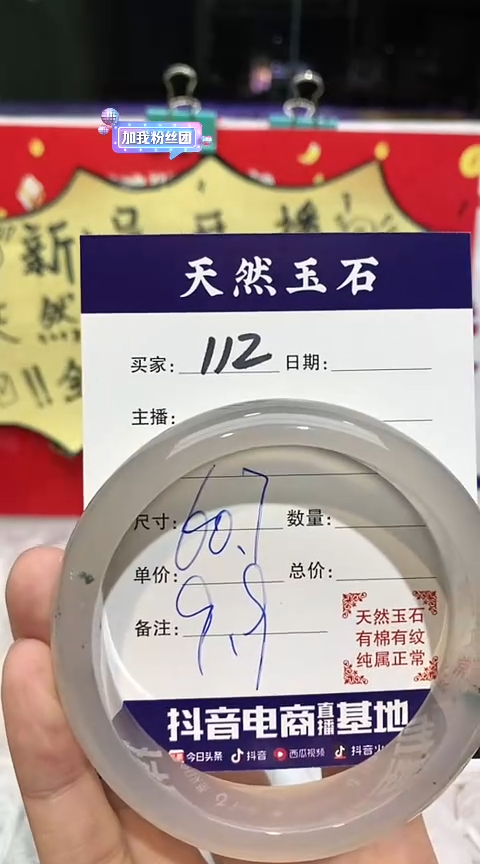 加我粉丝团
新品开播
天然
天然玉石
买家: 112 日期:
主播:
尺寸: 60.7 数量:
单价: 9.9 总价:
备注:
天然玉石
有棉有纹
纯属正常
抖音电商直播基地
今日头条 抖音 西瓜视频 抖音火